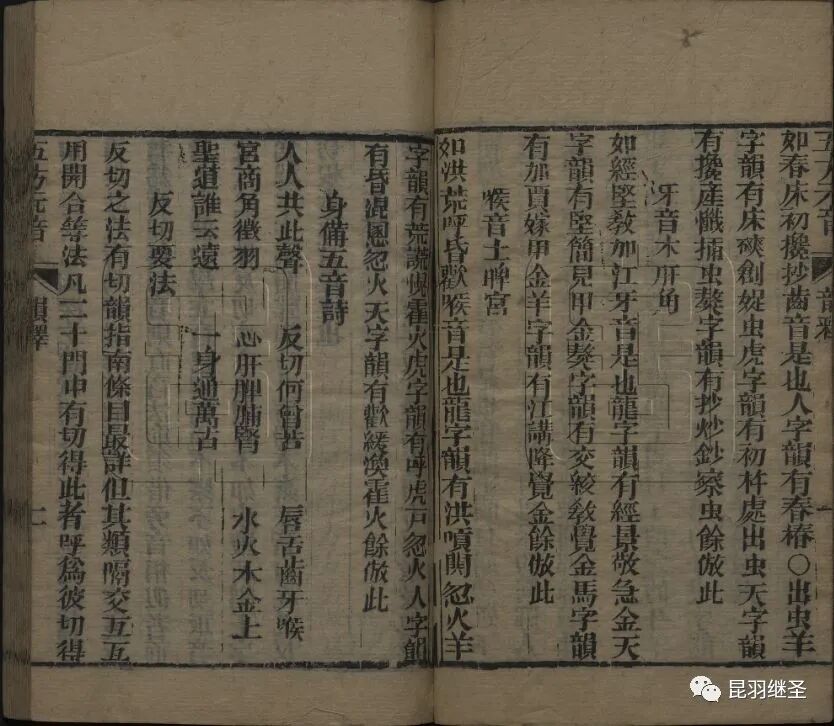 五方元音
韻釋
一
如春床初攙抄齒音是也人字韻有春椿〇出虫羊
字韻有床磢創娖虫虎字韻有初杵處出虫天字韻
有攙產懺插虫獒字韻有抄炒鈔察虫餘倣此
牙音木肝角
如經堅教加江牙音是也龍字韻有經景敬急金天
字韻有堅簡見甲金獒字韻有交絞教覺金馬字韻
有加賈嫁甲金羊字韻有江講降覺金餘倣此
喉音土脾宮
如洪荒呼昏歡喉音是也龍字韻有洪嗊鬨忽火羊
字韻有荒謊愰霍火虎字韻有呼虎戸忽火人字韻
有昏混慁忽火天字韻有歡緩渙霍火餘倣此
身備五音詩
人人共此聲 反切何曾苦 唇舌齒牙喉
宮商角徵羽 心肝脾肺腎 水火木金土
聖道誰云遠 一身通萬古
反切要法
反切之法有切韻指南條目最詳但其類隔交互五
用開合等法凡二十門中有切得此者呼爲彼切得
五方元音
韻釋
二
昆羽继圣